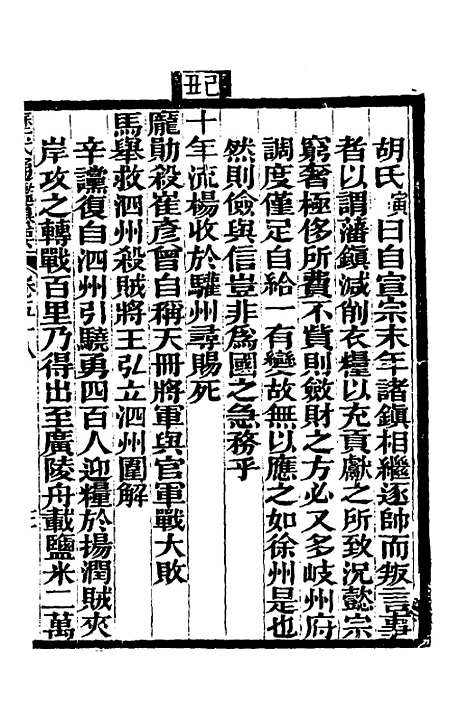 己丑
胡氏寅曰自宣宗末年諸鎮相繼逐帥而叛言事
者以謂藩鎮減削衣糧以充貢獻之所致況懿宗
窮奢極侈所費不貲則斂財之方必又多岐州府
調度僅足自給一有變故無以應之如徐州是也
然則儉與信豈非爲國之急務乎
十年流楊收於驩州尋賜死
龐勛殺崔彥曾自稱天冊將軍與官軍戰大敗
馬舉救泗州殺賊將王弘立泗州圍解
辛讜復自泗州引驍勇四百人迎糧於揚潤賊夾
岸攻之轉戰百里乃得出至廣陵舟載鹽米二萬
卷五十八